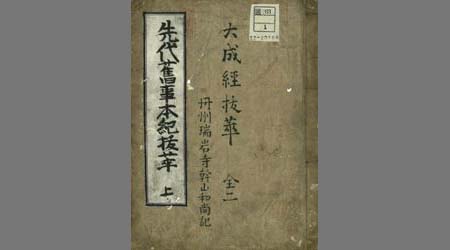 先代舊事本紀抜萃 上
大成經抜萃 全二
丹州瑞岩寺幹山和尚記
1